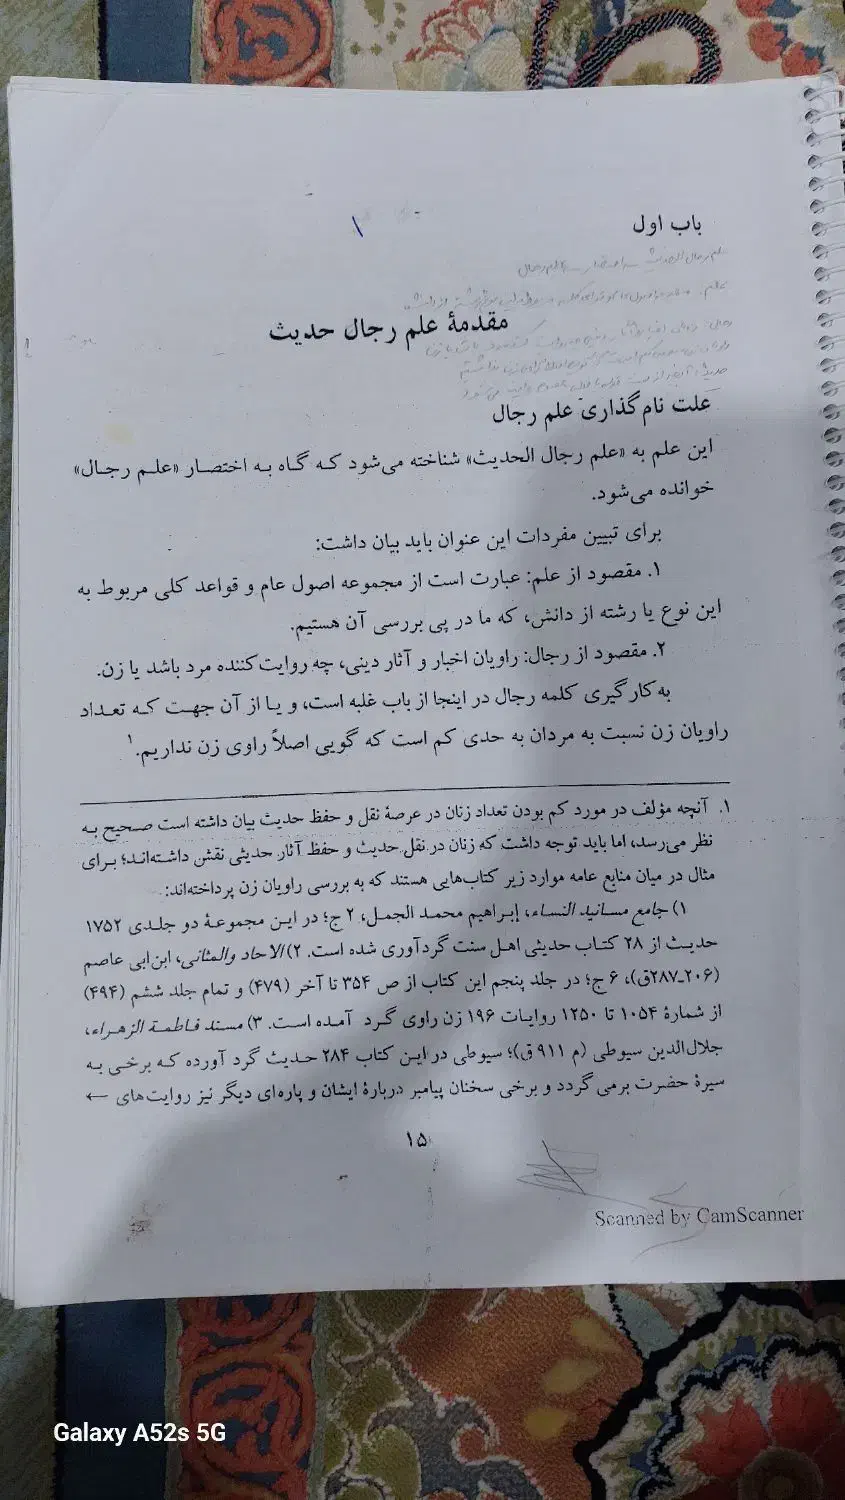 باب اول
۱
مقدمهٔ علم رجال حدیث
علت نام‌گذاری علم رجال
این علم به «علم رجال الحدیث» شناخته می‌شود که گاه به اختصار «علم رجال»
خوانده می‌شود.
برای تبیین مفردات این عنوان باید بیان داشت:
۱. مقصود از علم: عبارت است از مجموعه اصول عام و قواعد کلی مربوط به
این نوع یا رشته از دانش، که ما در پی بررسی آن هستیم.
۲. مقصود از رجال: راویان اخبار و آثار دینی، چه روایت‌کننده مرد باشد یا زن.
به‌کارگیری کلمه رجال در اینجا از باب غلبه است، و یا از آن جهت که تعداد
راویان زن نسبت به مردان به حدی کم است که گویی اصلاً راوی زن نداریم.۱
۱. آنچه مؤلف در مورد کم بودن تعداد زنان در عرصهٔ نقل و حفظ حدیث بیان داشته است صحیح به
نظر می‌رسد، اما باید توجه داشت که زنان در نقل حدیث و حفظ آثار حدیثی نقش داشته‌اند؛ برای
مثال در میان منابع عامه موارد زیر کتاب‌هایی هستند که به بررسی راویان زن پرداخته‌اند:
۱) جامع مسانید النساء، إبراهیم محمد الجمل، ۲ ج؛ در این مجموعهٔ دو جلدی ۱۷۵۲
حدیث از ۲۸ کتاب حدیثی اهل سنت گردآوری شده است. ۲) الاحاد والمثانی، ابن‌ابی عاصم
(۲۰۶ـ۲۸۷ق)، ۶ ج؛ در جلد پنجم این کتاب از ص ۳۵۴ تا آخر (۴۷۹) و تمام جلد ششم (۴۹۴)
از شمارهٔ ۱۰۵۴ تا ۱۲۵۰ روایات ۱۹۶ زن راوی گرد آمده است. ۳) مسند فاطمة الزهراء،
جلال‌الدین سیوطی (م ۹۱۱ ق)؛ سیوطی در این کتاب ۲۸۴ حدیث گرد آورده که برخی به
سیرهٔ حضرت برمی گردد و برخی سخنان پیامبر دربارهٔ ایشان و پاره‌ای دیگر نیز روایت‌های ←
۱۵
Scanned by CamScanner
Galaxy A52s 5G